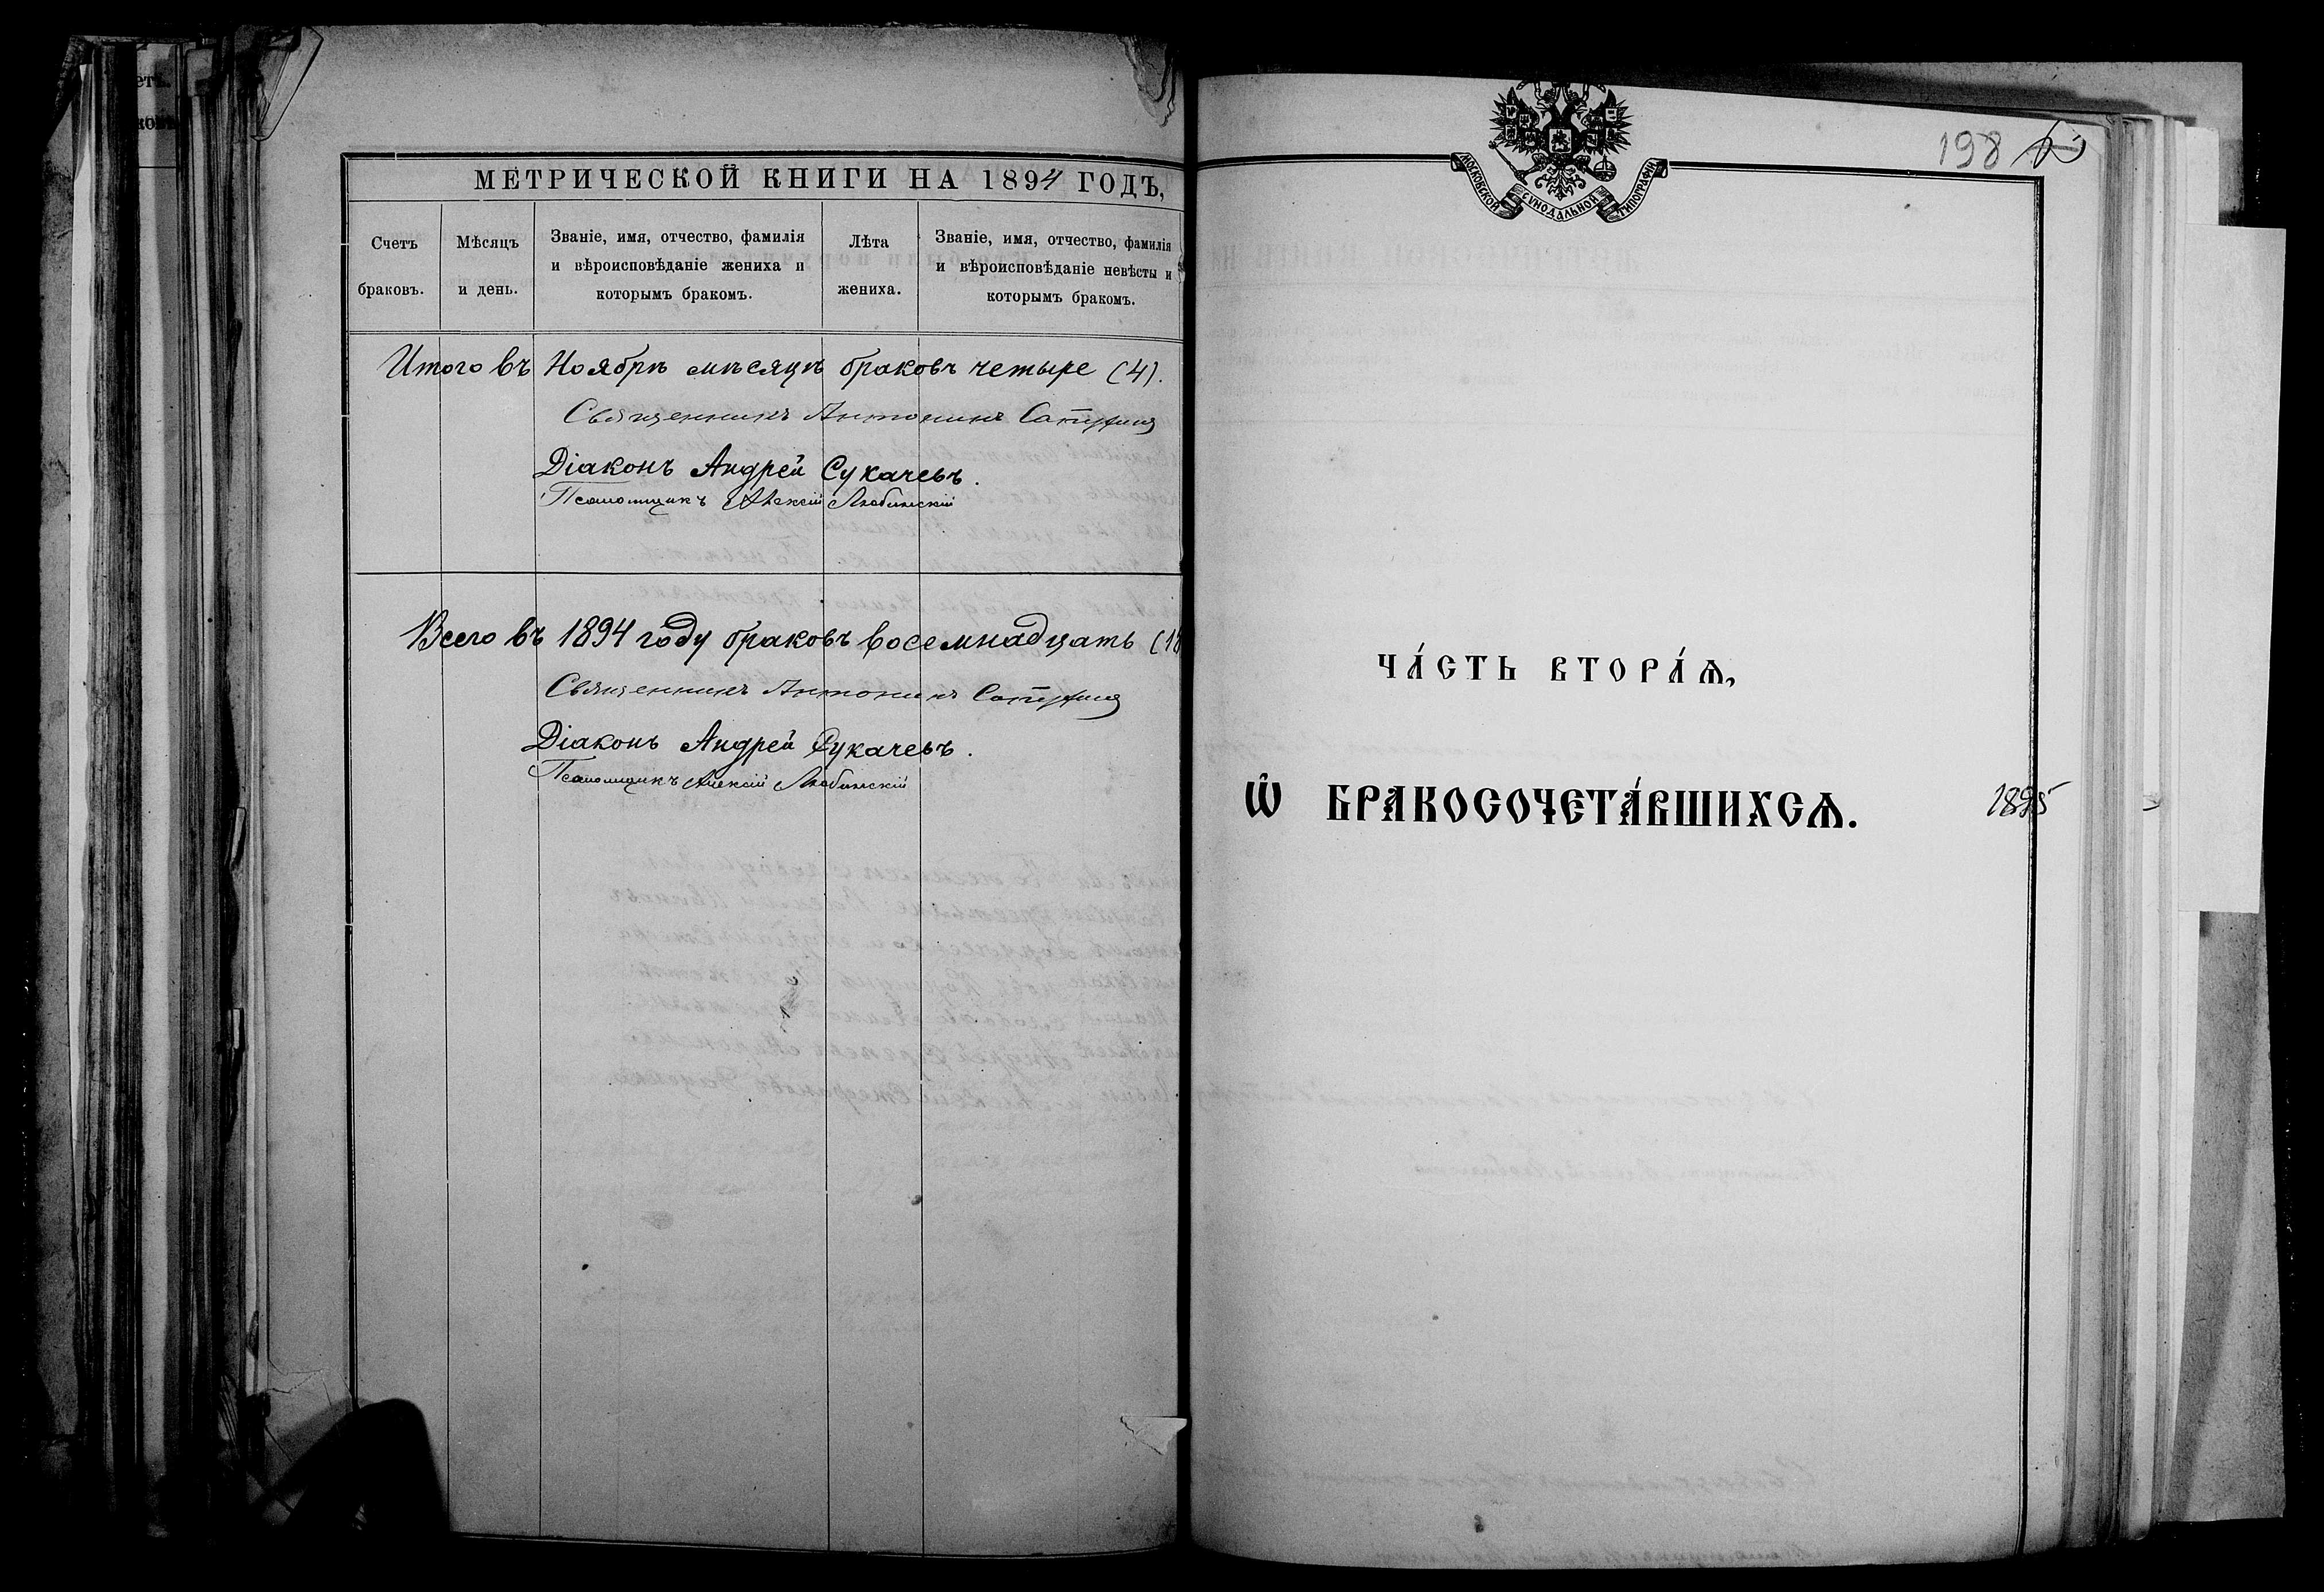 МЕТРИЧЕСКОЙ КНИГИ НА 1894 ГОДЪ,
Счетъ браковъ.
Мѣсяцъ и день.
Званіе, имя, отчество, фамилія
и вѣроисповѣданіе жениха и
которымъ бракомъ.
Лѣта жениха.
Званіе, имя, отчество, фамилія
и вѣроисповѣданіе невѣсты и
которымъ бракомъ.
Итого въ Ноябрѣ мѣсяцѣ браковъ четыре (4).
Священникъ Антонинъ
Діаконъ Андрей Сукачевъ.
Псаломщикъ Алексій Любинскій
Всего въ 1894 году браковъ восемнадцать (18
Священникъ Антонинъ
Діаконъ Андрей Сукачевъ.
Псаломщикъ Алексій Любинскій
МОСКОВСКОЙ СѴНОДАЛЬНОЙ ТИПОГРАФІИ
198
ЧА́СТЬ ВТОРА́Ѧ,
Ѽ БРАКОСОЧЕТА́ВШИХСѦ.
1895